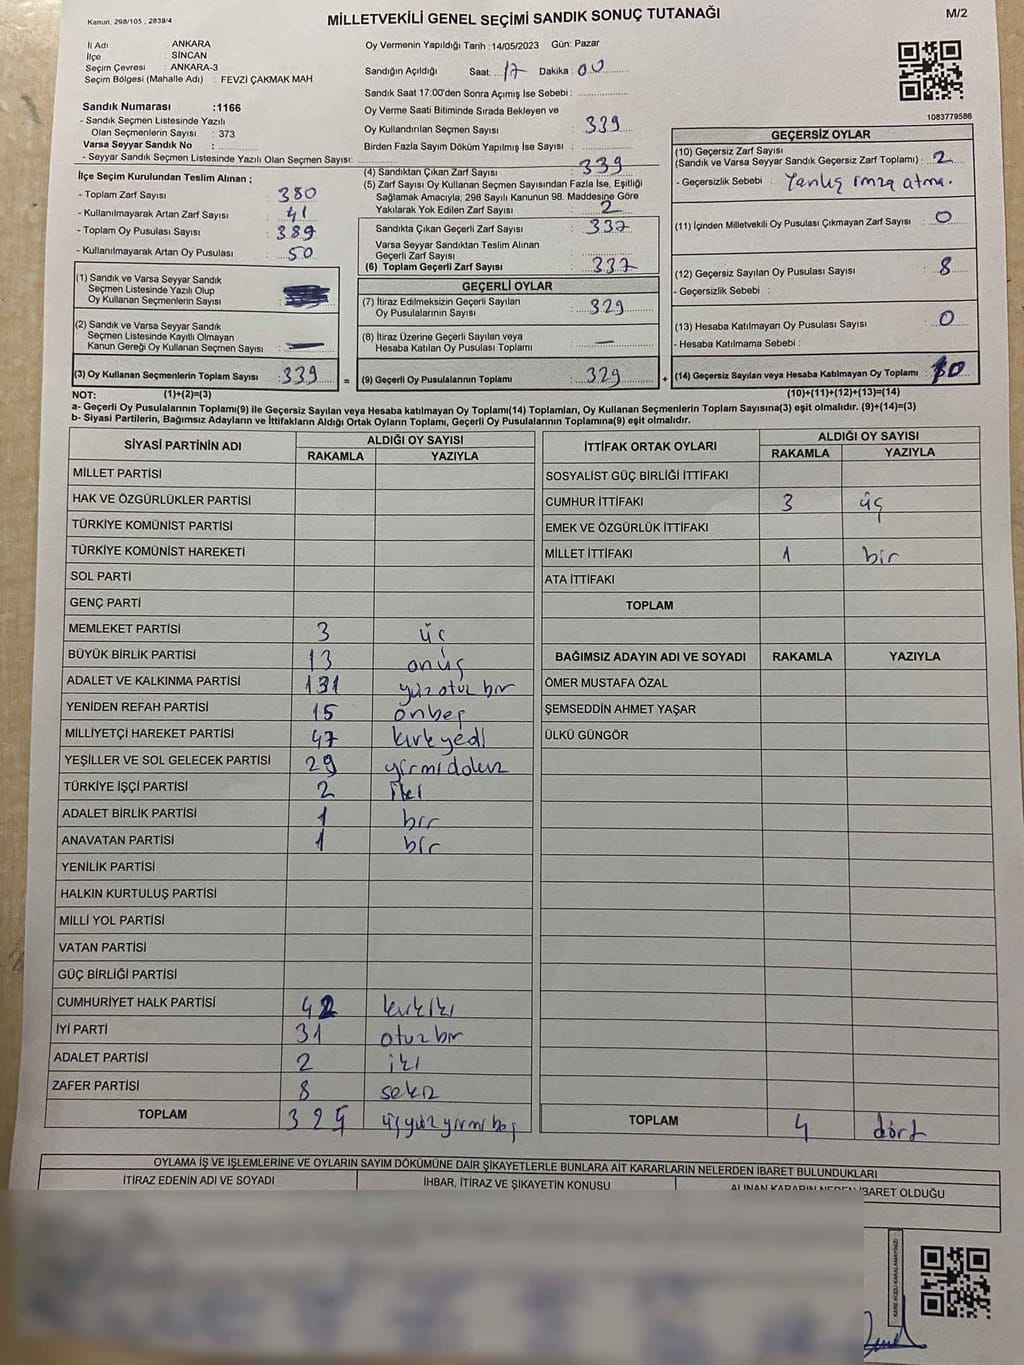 Kanun. 298/105 , 2839/4
MİLLETVEKİLİ GENEL SEÇİMİ SANDIK SONUÇ TUTANAĞI
M/2
İl Adı : ANKARA
İlçe : SİNCAN
Seçim Çevresi : ANKARA-3
Seçim Bölgesi (Mahalle Adı) : FEVZİ ÇAKMAK MAH.
Sandık Numarası :1166
- Sandık Seçmen Listesinde Yazılı
Olan Seçmenlerin Sayısı : 373
Varsa Seyyar Sandık No :
- Seyyar Sandık Seçmen Listesinde Yazılı Olan Seçmen Sayısı:
İlçe Seçim Kurulundan Teslim Alınan ;
- Toplam Zarf Sayısı : 380
- Kullanılmayarak Artan Zarf Sayısı : 41
- Toplam Oy Pusulası Sayısı : 389
- Kullanılmayarak Artan Oy Pusulası : 50
(1) Sandık ve Varsa Seyyar Sandık
Seçmen Listesinde Yazılı Olup
Oy Kullanan Seçmenlerin Sayısı :
(2) Sandık ve Varsa Seyyar Sandık
Seçmen Listesinde Kayıtlı Olmayan
Kanun Gereği Oy Kullanan Seçmen Sayısı : —
(3) Oy Kullanan Seçmenlerin Toplam Sayısı : 339
Oy Vermenin Yapıldığı Tarih :14/05/2023 Gün: Pazar
Sandığın Açıldığı Saat: 17 Dakika : 00
Sandık Saat 17:00'den Sonra Açımış İse Sebebi :
Oy Verme Saati Bitiminde Sırada Bekleyen ve
Oy Kullandırılan Seçmen Sayısı : 339
Birden Fazla Sayım Döküm Yapılmış İse Sayısı :
(4) Sandıktan Çıkan Zarf Sayısı : 339
(5) Zarf Sayısı Oy Kullanan Seçmen Sayısından Fazla İse, Eşitliği
Sağlamak Amacıyla; 298 Sayılı Kanunun 98. Maddesine Göre
Yakılarak Yok Edilen Zarf Sayısı : 2
Sandıkta Çıkan Geçerli Zarf Sayısı : 337
Varsa Seyyar Sandıktan Teslim Alınan
Geçerli Zarf Sayısı :
(6) Toplam Geçerli Zarf Sayısı : 337
GEÇERLİ OYLAR
(7) İtiraz Edilmeksizin Geçerli Sayılan
Oy Pusulalarının Sayısı : 329
(8) İtiraz Üzerine Geçerli Sayılan veya
Hesaba Katılan Oy Pusulası Toplamı : —
= (9) Geçerli Oy Pusulalarının Toplamı : 329 +
1083779586
GEÇERSİZ OYLAR
(10) Geçersiz Zarf Sayısı
(Sandık ve Varsa Seyyar Sandık Geçersiz Zarf Toplamı) : 2
- Geçersizlik Sebebi : Yanlış imza atma.
(11) İçinden Milletvekili Oy Pusulası Çıkmayan Zarf Sayısı : 0
(12) Geçersiz Sayılan Oy Pusulası Sayısı : 8
- Geçersizlik Sebebi :
(13) Hesaba Katılmayan Oy Pusulası Sayısı : 0
- Hesaba Katılmama Sebebi :
(14) Geçersiz Sayılan veya Hesaba Katılmayan Oy Toplamı : 10
NOT: (1)+(2)=(3) (10)+(11)+(12)+(13)=(14)
a- Geçerli Oy Pusulalarının Toplamı(9) ile Geçersiz Sayılan veya Hesaba katılmayan Oy Toplamı(14) Toplamları, Oy Kullanan Seçmenlerin Toplam Sayısına(3) eşit olmalıdır. (9)+(14)=(3)
b- Siyasi Partilerin, Bağımsız Adayların ve İttifakların Aldığı Ortak Oyların Toplamı, Geçerli Oy Pusulalarının Toplamına(9) eşit olmalıdır.
SİYASİ PARTİNİN ADI ALDIĞI OY SAYISI
RAKAMLA YAZIYLA
MİLLET PARTİSİ
HAK VE ÖZGÜRLÜKLER PARTİSİ
TÜRKİYE KOMÜNİST PARTİSİ
TÜRKİYE KOMÜNİST HAREKETİ
SOL PARTİ
GENÇ PARTİ
MEMLEKET PARTİSİ 3 üç
BÜYÜK BİRLİK PARTİSİ 13 onüç
ADALET VE KALKINMA PARTİSİ 131 yüz otuz bir
YENİDEN REFAH PARTİSİ 15 onbeş
MİLLİYETÇİ HAREKET PARTİSİ 47 kırkyedi
YEŞİLLER VE SOL GELECEK PARTİSİ 29 yirmidokuz
TÜRKİYE İŞÇİ PARTİSİ 2 iki
ADALET BİRLİK PARTİSİ 1 bir
ANAVATAN PARTİSİ 1 bir
YENİLİK PARTİSİ
HALKIN KURTULUŞ PARTİSİ
MİLLİ YOL PARTİSİ
VATAN PARTİSİ
GÜÇ BİRLİĞİ PARTİSİ
CUMHURİYET HALK PARTİSİ 42 kırkiki
İYİ PARTİ 31 otuz bir
ADALET PARTİSİ 2 iki
ZAFER PARTİSİ 8 sekiz
TOPLAM 325 üçyüz yirmi beş
İTTİFAK ORTAK OYLARI ALDIĞI OY SAYISI
RAKAMLA YAZIYLA
SOSYALİST GÜÇ BİRLİĞİ İTTİFAKI
CUMHUR İTTİFAKI 3 üç
EMEK VE ÖZGÜRLÜK İTTİFAKI
MİLLET İTTİFAKI 1 bir
ATA İTTİFAKI
TOPLAM
BAĞIMSIZ ADAYIN ADI VE SOYADI RAKAMLA YAZIYLA
ÖMER MUSTAFA ÖZAL
ŞEMSEDDİN AHMET YAŞAR
ÜLKÜ GÜNGÖR
TOPLAM 4 dört
OYLAMA İŞ VE İŞLEMLERİNE VE OYLARIN SAYIM DÖKÜMÜNE DAİR ŞİKAYETLERLE BUNLARA AİT KARARLARIN NELERDEN İBARET BULUNDUKLARI
İTİRAZ EDENİN ADI VE SOYADI İHBAR, İTİRAZ VE ŞİKAYETİN KONUSU ALINAN KARARIN NEDEN İBARET OLDUĞU
KARE KODU KARALAMAYINIZ!